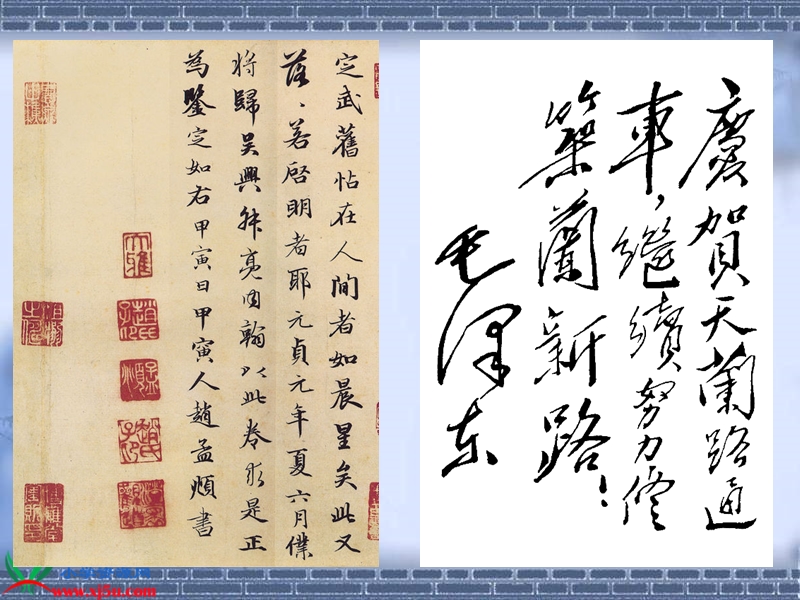 定武舊帖在人間者如晨星矣此又
落、若啓明者耶元貞元年夏六月僕
將歸吳興叔亮内翰以此卷求是正
為鑒定如右甲寅日甲寅人趙孟頫書
大雅
趙氏子昂
孟頫
趙氏子昂
慶賀天蘭路通
車，繼續努力修
築蘭新路！
毛澤东